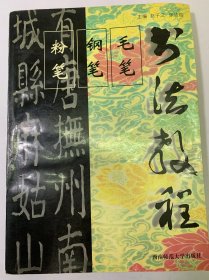 主编
书法教程
毛笔
钢笔
粉笔
有唐撫州南
城縣麻姑山
西南师范大学出版社